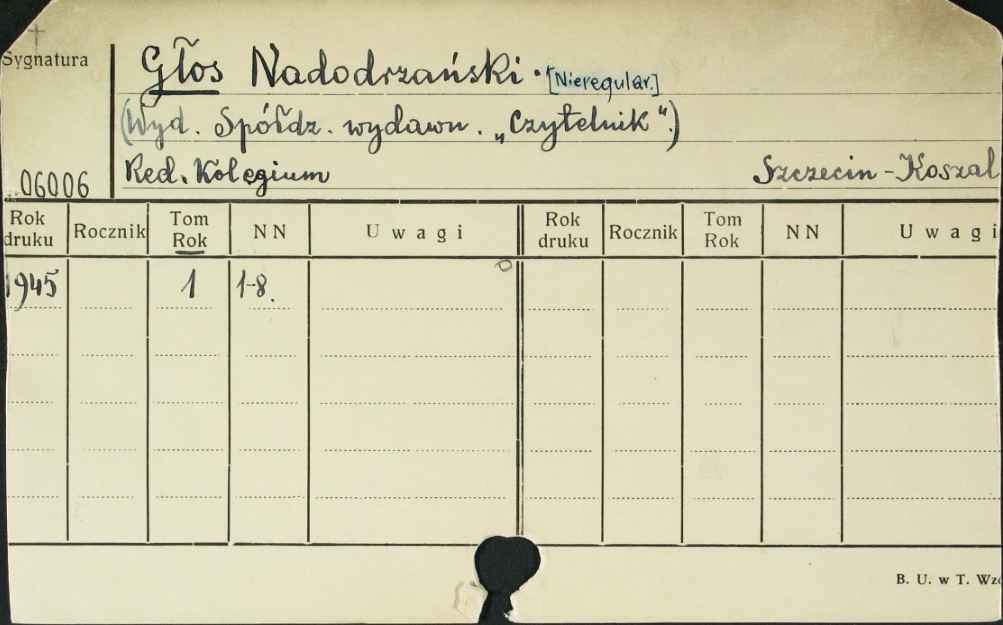 Sygnatura
Głos Nadodrzański. [Nieregular.]
(Wyd. Spółdz. wydawn. „Czytelnik“.)
06006
Red. Kolegium Szczecin-Koszal
Rok druku Rocznik Tom Rok NN Uwagi Rok druku Rocznik Tom Rok NN Uwagi
1945 1 1-8.
B. U. w T. Wzó